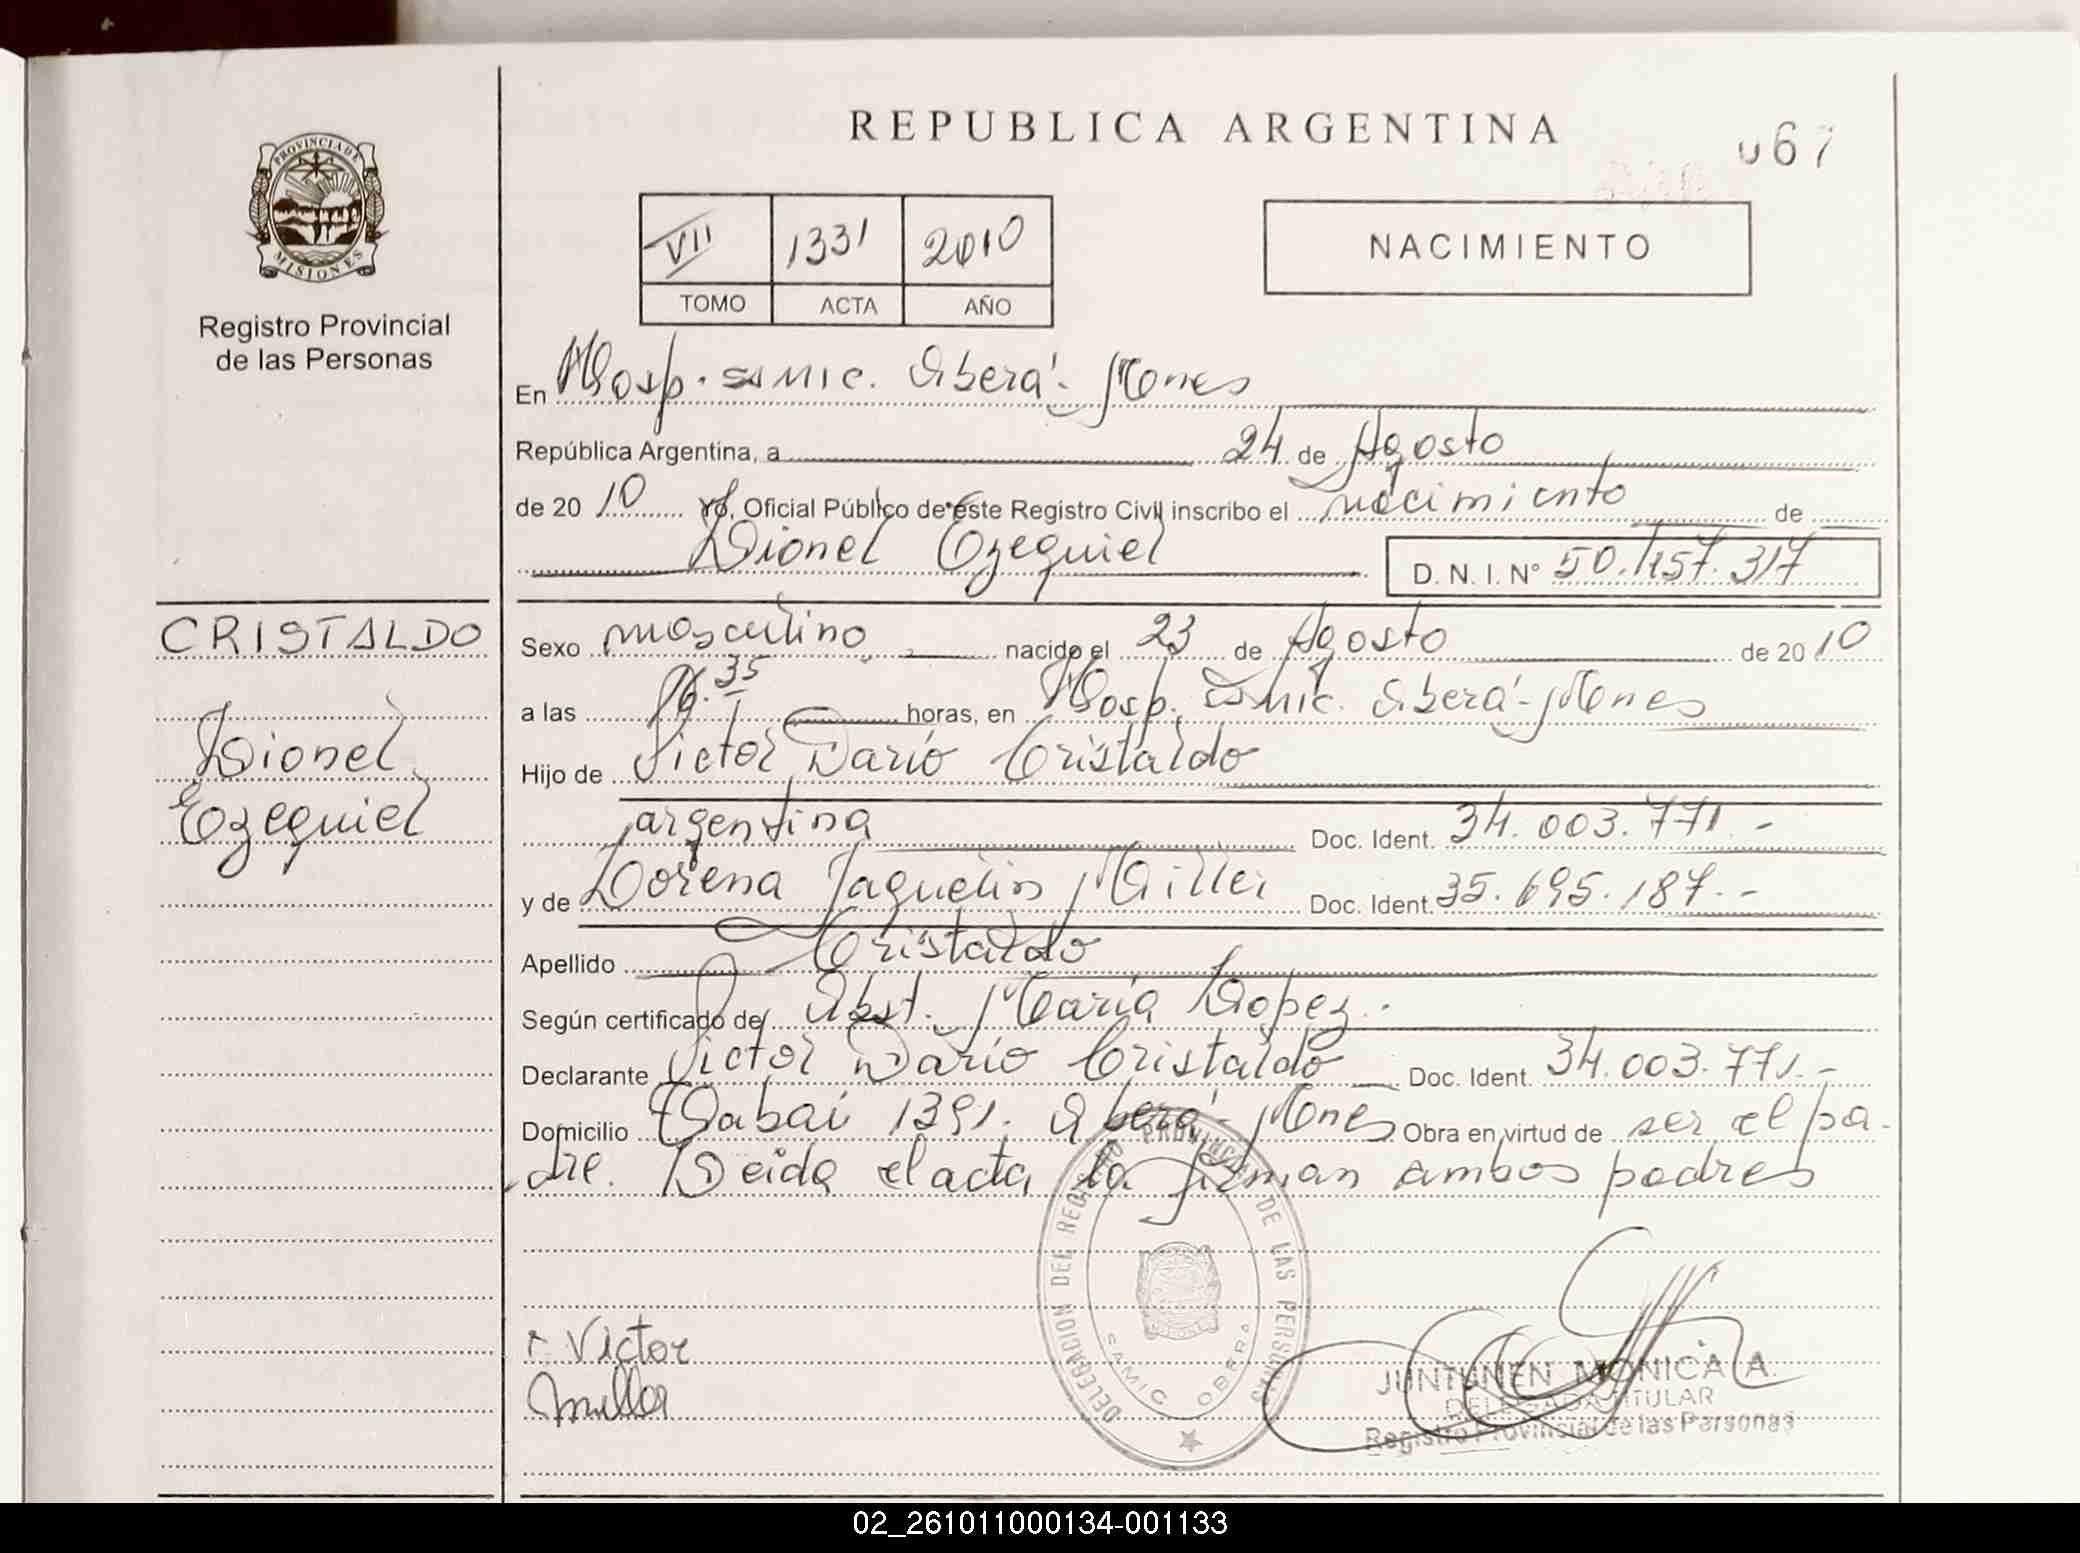 REPUBLICA ARGENTINA
067
PROVINCIA DE
MISIONES
Registro Provincial
de las Personas
VII 1331 2010
TOMO ACTA AÑO
NACIMIENTO
En Hosp. SAMIC. Oberá - Mnes
República Argentina, a 24 de Agosto
de 20 10 Yo, Oficial Público de este Registro Civil inscribo el nacimiento de
Lionel Ezequiel D. N. I. N° 50.157.317
CRISTALDO
Lionel
Ezequiel
Sexo masculino nacido el 23 de Agosto de 20 10
a las 16.35 horas, en Hosp. SAMIC. Oberá - Mones
Hijo de Victor Dario Cristaldo
argentina Doc. Ident. 34.003.771.-
y de Lorena Jaquelin Miller Doc. Ident. 35.695.187.-
Apellido Cristaldo
Según certificado de Obst. Maria Lopez.
Declarante Victor Dario Cristaldo Doc. Ident. 34.003.771.-
Domicilio 1391. Oberá - Mones Obra en virtud de ser el pa-
dre. Leida el acta la firman ambos padres
DELEGACION DEL REGISTRO PROVINCIAL DE LAS PERSONAS
SAMIC OBERA
Victor
Miller
JUNTUNEN MONICA A.
DELEGADA TITULAR
Registro Provincial de las Personas
02_261011000134-001133